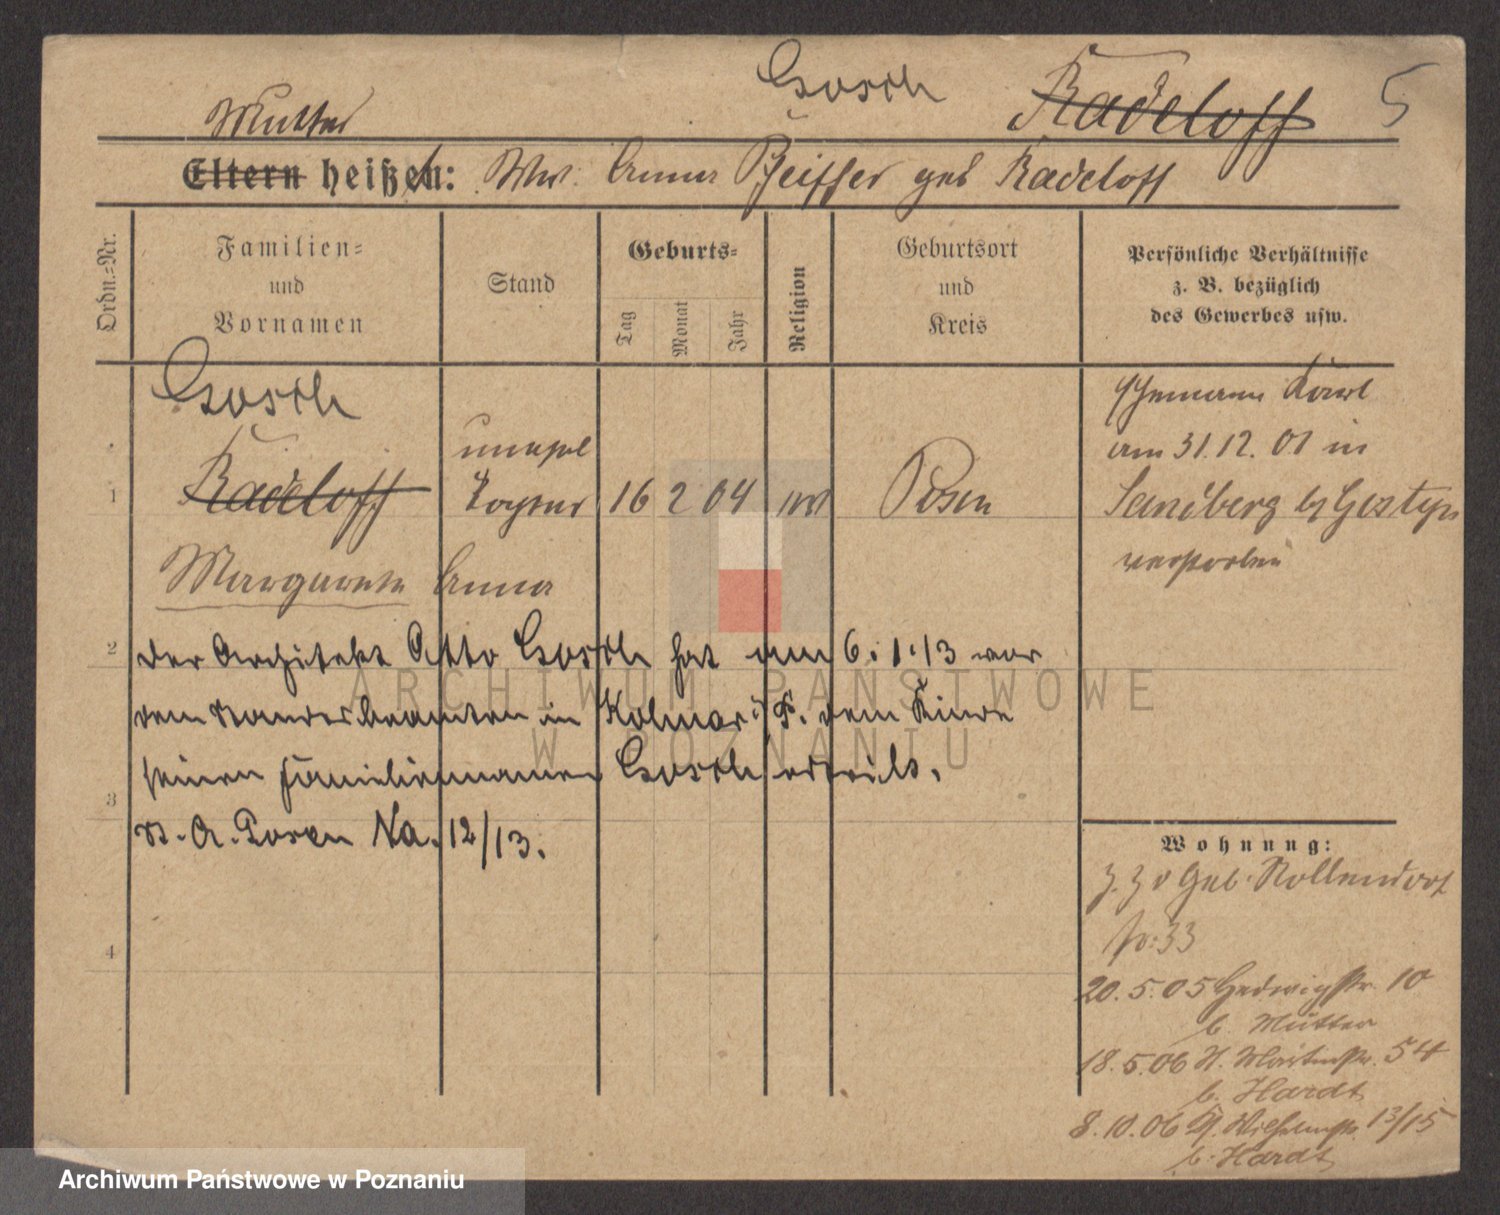 Gosch Radeloff 5
Mutter
Eltern heißen: Ww. Anna Pfeiffer geb Radeloff
Ordn.-Nr.
Familien-
und
Vornamen
Stand
Geburts-
Tag
Monat
Jahr
Religion
Geburtsort
und
Kreis
Persönliche Verhältnisse
z. B. bezüglich
des Gewerbes usw.
Gosch
1 Radeloff unehel Tochter 16 2 04 ev Posen
Margarete Anna
Ehemann Karl
am 31.12.01 in
Sandberg b/ Gostyn
verstorben
2 Der Architekt Otto Gosch hat am 6.1.13 vor
dem Standesbeamten in Kolmar i/P. dem Kinde
seinen Familiennamen Gosch erteilt.
3
St. A. Posen Na. 12/13.
4
Wohnung:
z. Z Nollendorf
str: 33
20.5.05 Hedwigstr. 10
b. Mutter
18.5.06 St. Martinstr. 54
b. Hardt
8.10.06 Wilhelmstr. 13/15
b. Hardt
ARCHIWUM PAŃSTWOWE
W POZNANIU
Archiwum Państwowe w Poznaniu